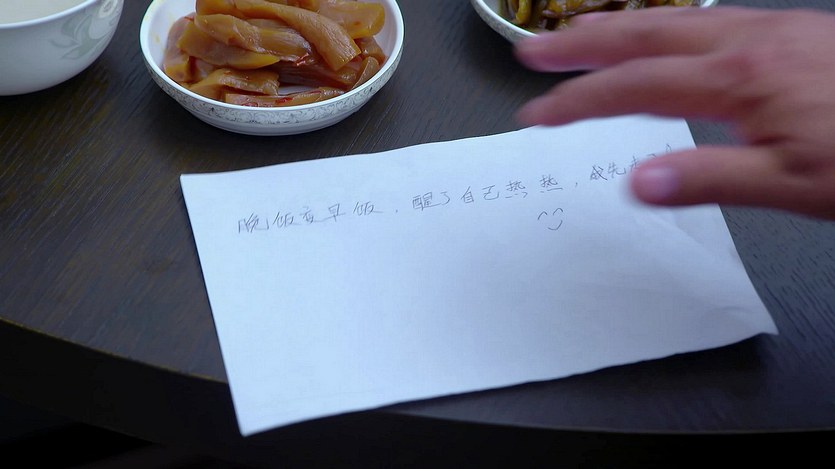 晚饭变早饭，醒了自己热热，我先走了